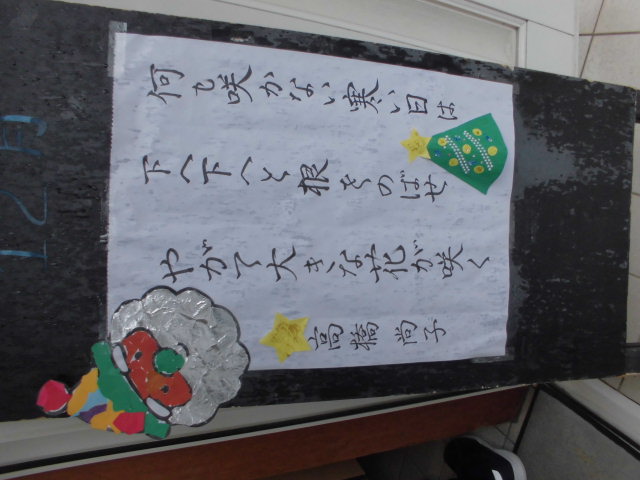 12月
何も咲かない寒い日は
下へ下へと根をのばせ
やがて大きな花が咲く
高橋尚子